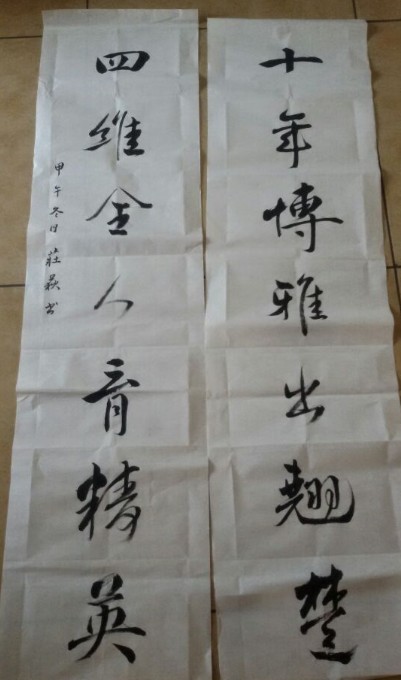 十年博雅出翘楚
四维全人育精英
甲午冬日 莊嚴书